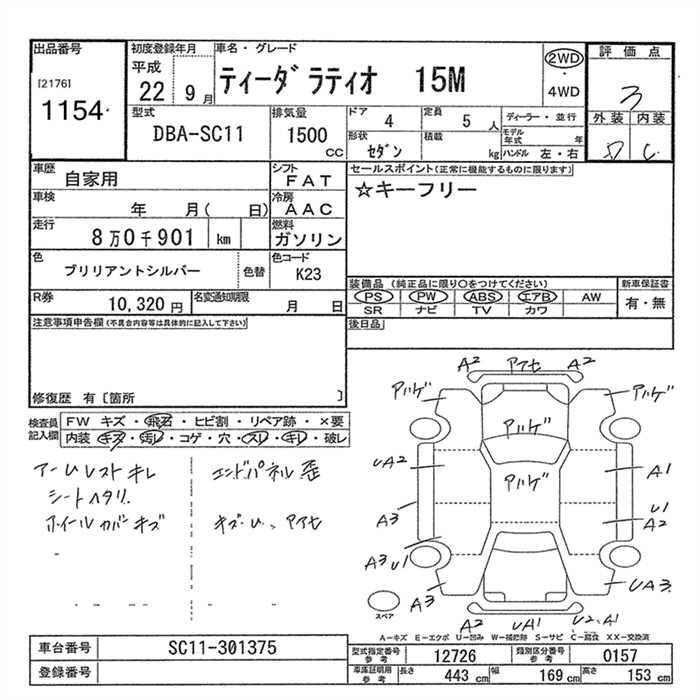 出品番号
[2176]
1154
初度登録年月
平成
22 9月
車名・グレード
ティーダ ラティオ 15M
2WD
・
4WD
評価点
3
外装 内装
D C
型式
DBA-SC11
排気量
1500
CC
ドア
4
定員
5 人
ディーラー・並行
形状
セダン
積載
kg
モデル年式 年
ハンドル 左・右
車歴
自家用
シフト
FAT
車検
年 月( 日)
冷房
AAC
走行
8万0千901 km
燃料
ガソリン
色
ブリリアントシルバー
色替
色コード
K23
R券
10,320 円
名変通知期限
月 日
セールスポイント(正常に機能するものに限ります)
☆キーフリー
装備品 (純正品に限り○をつけてください)
新車保証書
PS PW ABS エアB AW
有・無
SR ナビ TV カワ
後日品
注意事項申告欄(不具合内容等は具体的に記入して下さい)
修復歴 有〔箇所 〕
検査員
記入欄
FW キズ・飛石・ヒビ割・リペア跡・×要
内装 キズ・汚レ・コゲ・穴・スレ・キレ・破レ
アームレストキレ
シートヘタリ
ホイールカバーキズ
エンドパネル歪
キズ・U、アセ
A2 アセ A2
ハゲ
ハゲ
ハゲ
ハゲ
UA2
A1
A3
U1
A2
A3 U1
A3
UA3
A2 UA1 U2、A1
スペア
A－キズ E－エクボ U－凹み W－補修跡 S－サビ C－腐食 XX－交換済
車台番号
SC11-301375
登録番号
型式指定番号
参考
12726
類別区分番号
参考
0157
車庫証明用
参考
長さ 443 cm
幅 169 cm
高さ 153 cm